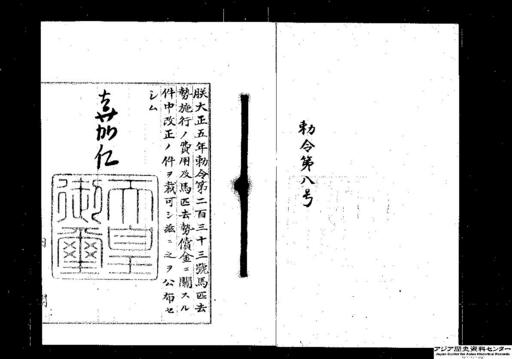 勅令第八号
朕大正五年勅令第二百三十三號馬匹去
勢施行ノ費用及馬匹去勢償金ニ關スル
件中改正ノ件ヲ裁可シ茲ニ之ヲ公布セ
シム
嘉仁
天皇
御璽
アジア歴史資料センター
Japan Center for Asian Historical Records